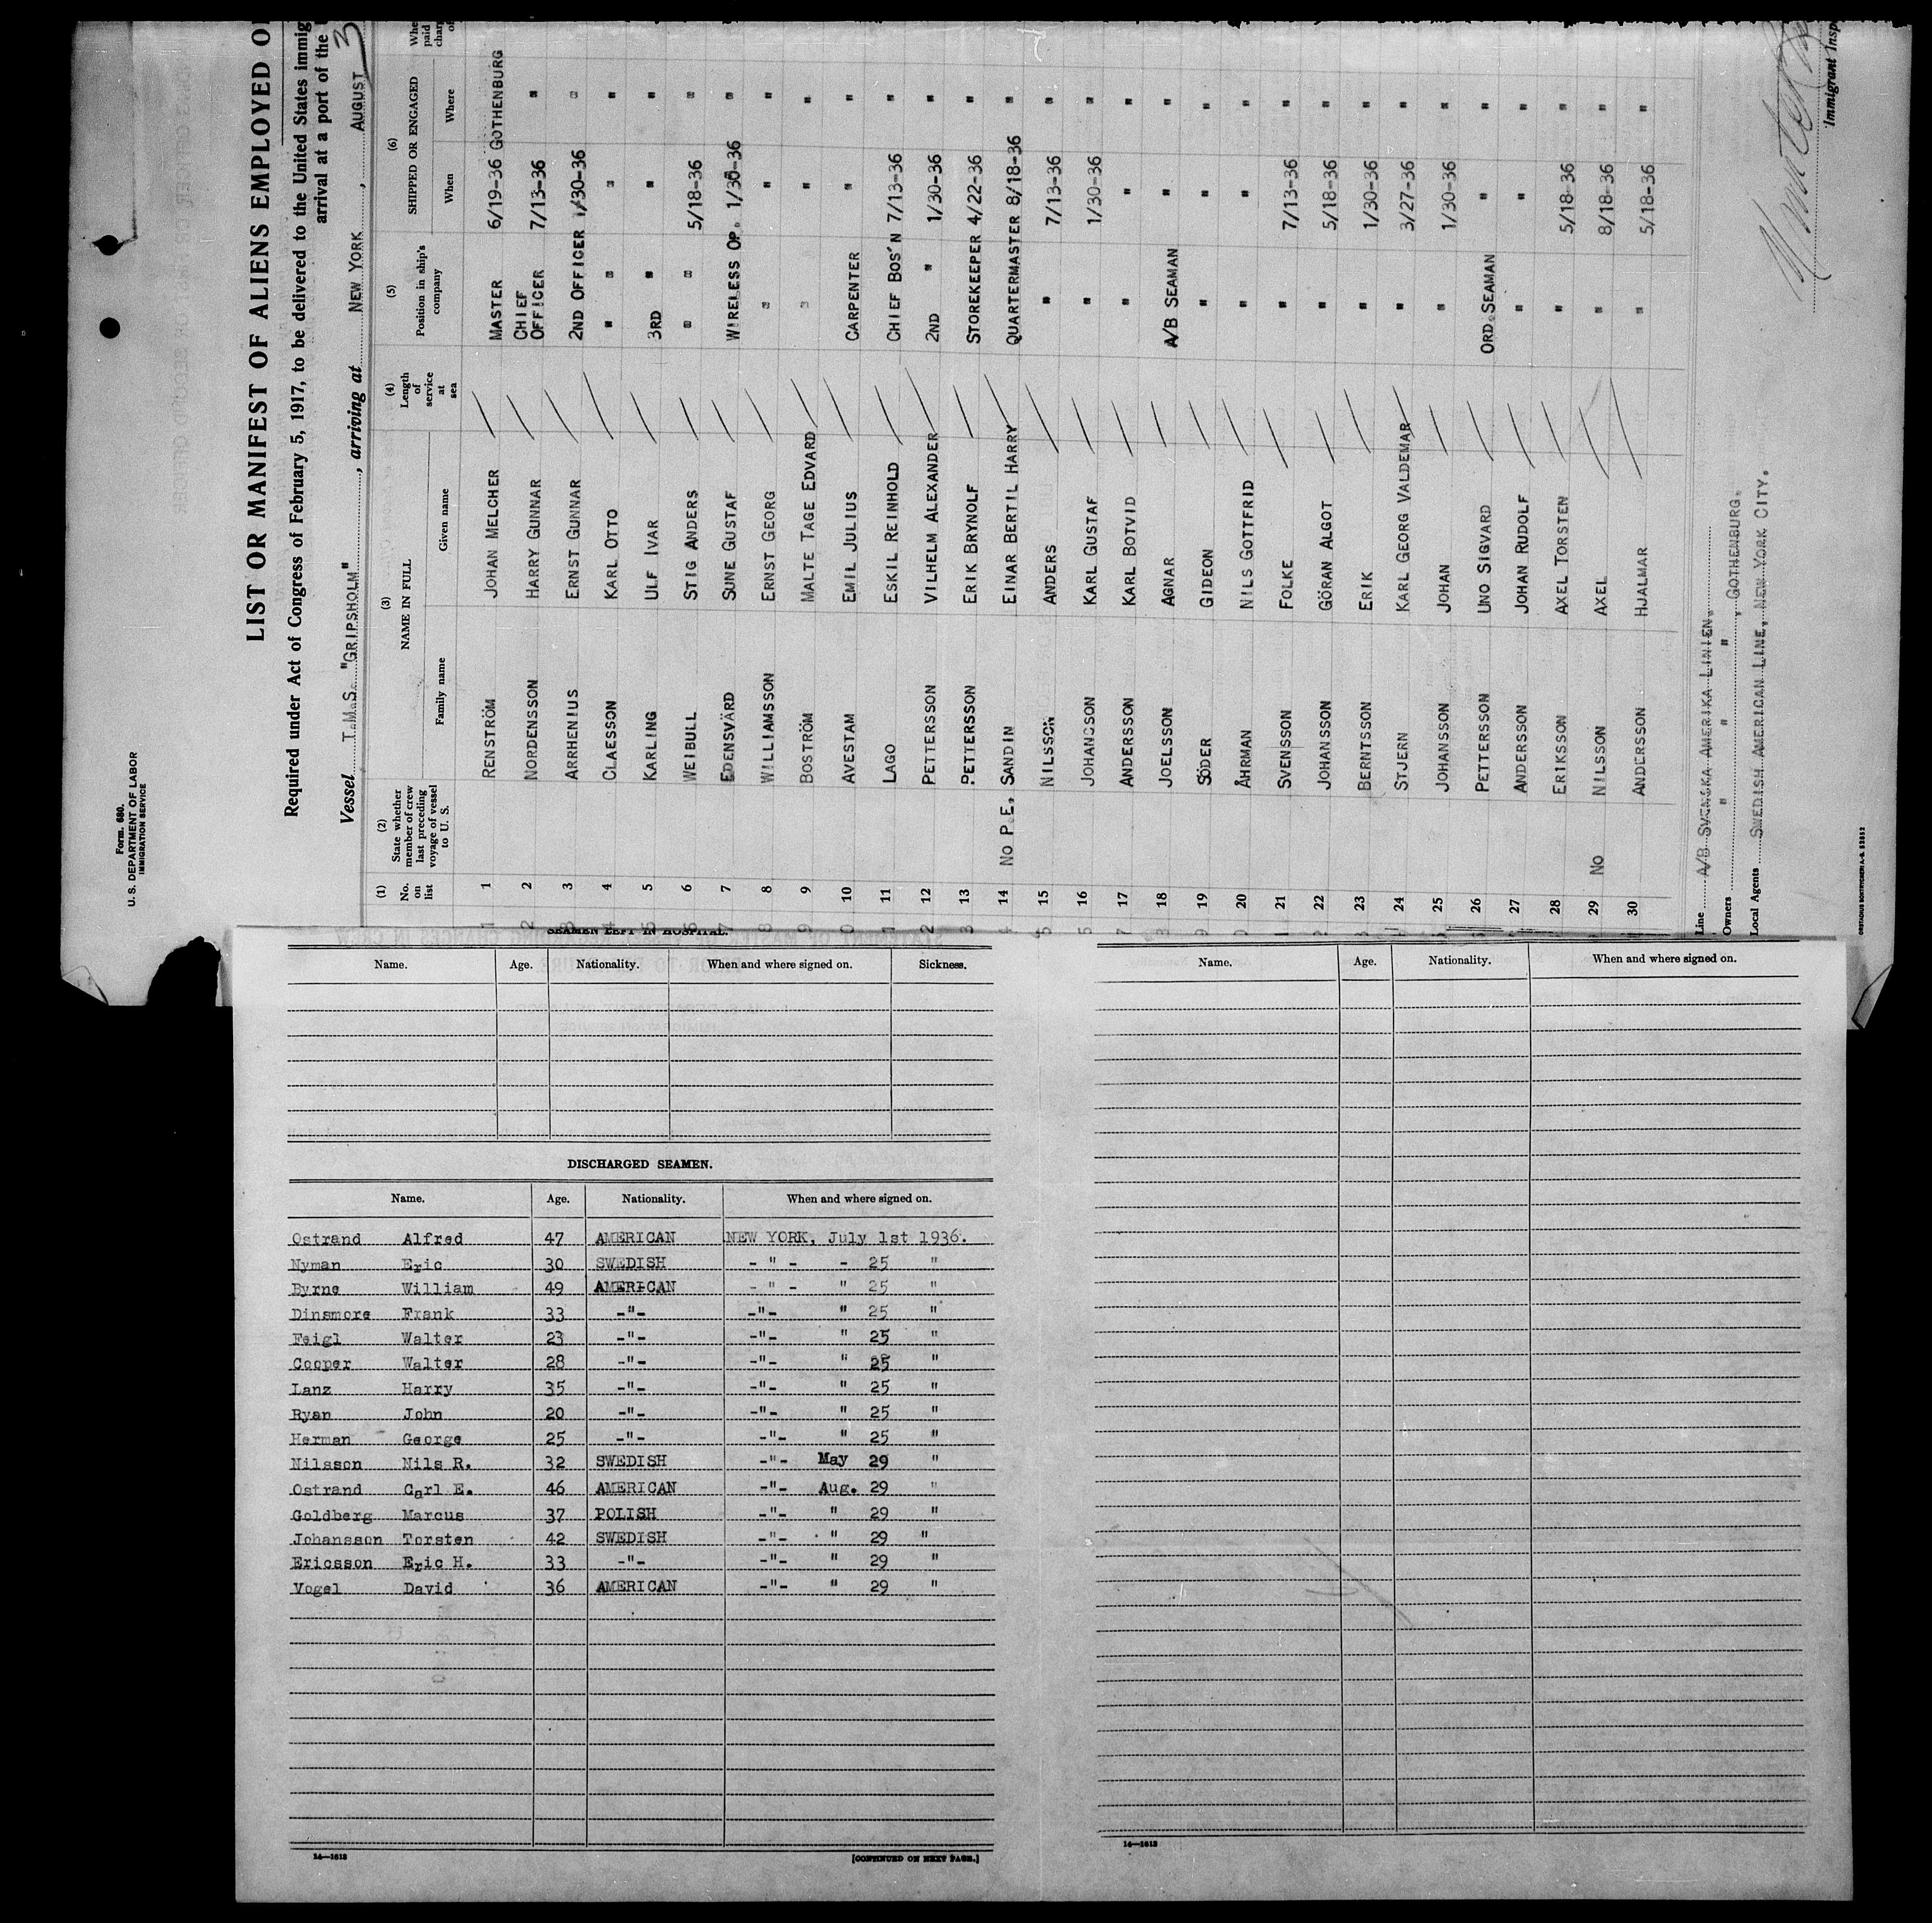 Form. 680.
U. S. DEPARTMENT OF LABOR
IMMIGRATION SERVICE
LIST OR MANIFEST OF ALIENS EMPLOYED
Required under Act of Congress of February 5, 1917, to be delivered to the United States immig
arrival at a port of the
Vessel T.M.S. "GRIPSHOLM", arriving at NEW YORK, AUGUST 3
(1) No. on list (2) State whether member of crew last preceding voyage of vessel to U. S. (3) NAME IN FULL Family name Given name (4) Length of service at sea (5) Position in ship's company (6) SHIPPED OR ENGAGED When Where
1 RENSTRÖM JOHAN MELCHER MASTER 6/19-36 GOTHENBURG
2 NORDENSSON HARRY GUNNAR CHIEF OFFICER 7/13-36 "
3 ARRHENIUS ERNST GUNNAR 2ND OFFICER 1/30-36 "
4 CLAESSON KARL OTTO " " " "
5 KARLING ULF IVAR 3RD " " "
6 WEIBULL STIG ANDERS " " 5/18-36 "
7 EDENSVÄRD SUNE GUSTAF WIRELESS OP. 1/30-36 "
8 WILLIAMSSON ERNST GEORG " " "
9 BOSTRÖM MALTE TAGE EDVARD " " "
10 AVESTAM EMIL JULIUS CARPENTER " "
11 LAGO ESKIL REINHOLD CHIEF BOS'N 7/13-36 "
12 PETTERSSON VILHELM ALEXANDER 2ND " 1/30-36 "
13 PETTERSSON ERIK BRYNOLF STOREKEEPER 4/22-36 "
14 NO P.E. SANDIN EINAR BERTIL HARRY QUARTERMASTER 8/18-36 "
15 NILSSON ANDERS " 7/13-36 "
16 JOHANSSON KARL GUSTAF " 1/30-36 "
17 ANDERSSON KARL BOTVID " " "
18 JOELSSON AGNAR A/B SEAMAN " "
19 SÖDER GIDEON " " "
20 ÅHRMAN NILS GOTTFRID " " "
21 SVENSSON FOLKE " 7/13-36 "
22 JOHANSSON GÖRAN ALGOT " 5/18-36 "
23 BERNTSSON ERIK " 1/30-36 "
24 STJERN KARL GEORG VALDEMAR " 3/27-36 "
25 JOHANSSON JOHAN " 1/30-36 "
26 PETTERSSON UNO SIGVARD ORD. SEAMAN " "
27 ANDERSSON JOHAN RUDOLF " " "
28 ERIKSSON AXEL TORSTEN " 5/18-36 "
29 NO NILSSON AXEL " 8/18-36 "
30 ANDERSSON HJALMAR " 5/18-36 "
Line A/B SVENSKA AMERIKA LINIEN.
Owners " " " , GOTHENBURG.
Local Agents SWEDISH AMERICAN LINE, NEW YORK CITY.
Immigrant Insp
SEAMEN LEFT IN HOSPITAL.
Name. Age. Nationality. When and where signed on. Sickness.
DISCHARGED SEAMEN.
Name. Age. Nationality. When and where signed on.
Ostrand Alfred 47 AMERICAN NEW YORK, July 1st 1936.
Nyman Eric 30 SWEDISH - " - - 25 "
Byrne William 49 AMERICAN - " - " 25 "
Dinsmore Frank 33 -"- -"- " 25 "
Feigl Walter 23 -"- -"- " 25 "
Cooper Walter 28 -"- -"- " 25 "
Lanz Harry 35 -"- -"- " 25 "
Ryan John 20 -"- -"- " 25 "
Herman George 25 -"- -"- " 25 "
Nilsson Nils R. 32 SWEDISH -"- May 29 "
Ostrand Carl E. 46 AMERICAN -"- Aug. 29 "
Goldberg Marcus 37 POLISH -"- " 29 "
Johansson Torsten 42 SWEDISH -"- " 29 "
Ericsson Eric H. 33 -"- -"- " 29 "
Vogel David 36 AMERICAN -"- " 29 "
14—1613
[CONTINUED ON NEXT PAGE.]
Name. Age. Nationality. When and where signed on.
14—1613